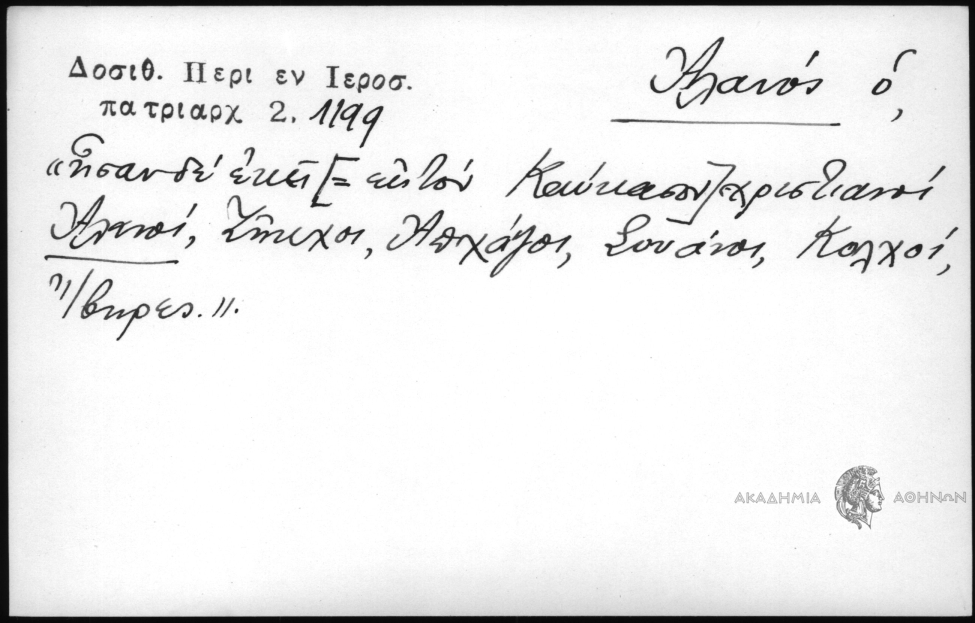 Δοσιθ. Περι εν Ιεροσ.
πατριαρχ 2. 1199
Ἀλανός ὁ,
«Ἦσαν δέ ἐκεῖ [= εἰς τόν Καύκασον] χριστιανοί
Ἀλανοί, Ζῆκχοι, Ἀπχάζοι, Σουάνοι, Κολχοί,
Ἴβηρες.».
ΑΚΑΔΗΜΙΑ ΑΘΗΝΩΝ